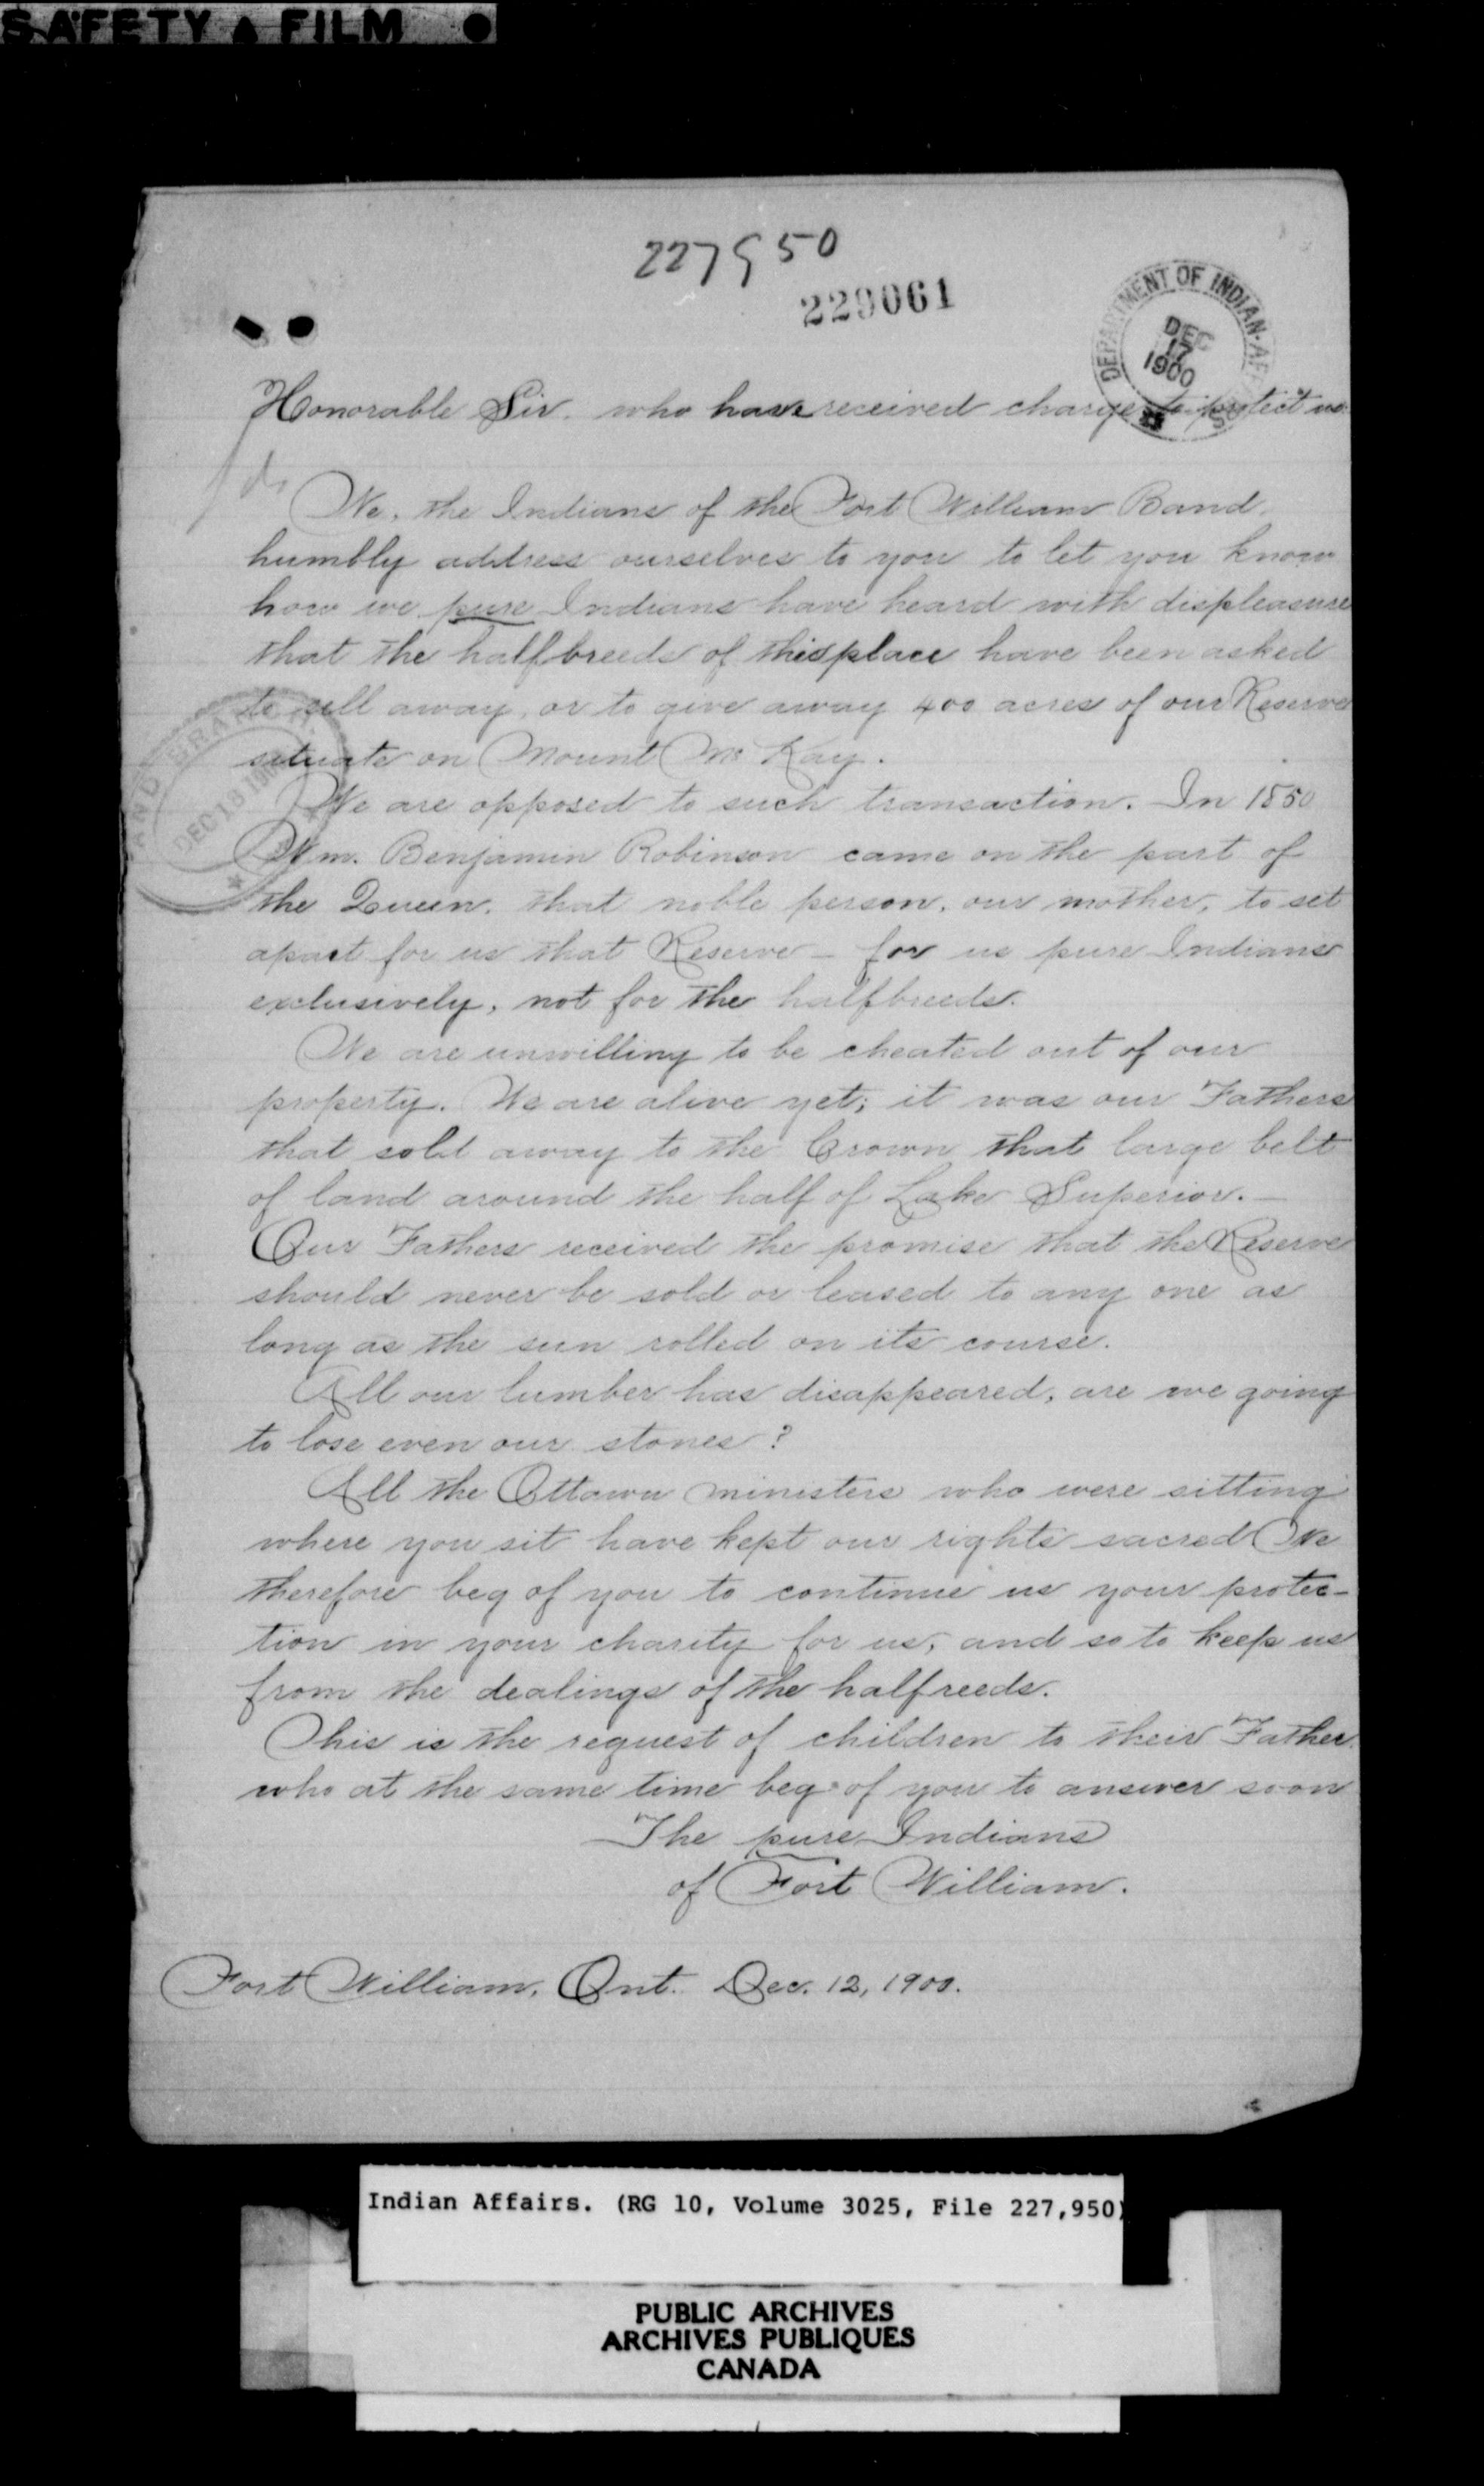 SAFETY FILM
227950
229061
DEPARTMENT OF INDIAN AFF
DEC
17
1900
Honorable Sir. who have received charge to protect us
We, the Indians of the Fort William Band,
humbly address ourselves to you to let you know
how we pure Indians have heard with displeasure
that the halfbreeds of this place have been asked
to sell away, or to give away 400 acres of our Reserve
situate on Mount Mc Kay.
LAND BRANCH
DEC 18 1900
We are opposed to such transaction. In 1850
Wm. Benjamin Robinson came on the part of
the Queen, that noble person, our mother, to set
apart for us that Reserve - for us pure Indians
exclusively, not for the halfbreeds.
We are unwilling to be cheated out of our
property. We are alive yet; it was our Fathers
that sold away to the Crown that large belt
of land around the half of Lake Superior. -
Our Fathers received the promise that the Reserve
should never be sold or leased to any one as
long as the sun rolled on its course.
All our lumber has disappeared, are we going
to lose even our stones?
All the Ottawa ministers who were sitting
where you sit have kept our rights sacred We
therefore beg of you to continue us your protec-
tion in your charity for us, and so to keep us
from the dealings of the halfreeds.
This is the request of children to their Father
who at the same time beg of you to answer soon
The pure Indians
of Fort William.
Fort William, Ont. Dec. 12, 1900.
Indian Affairs. (RG 10, Volume 3025, File 227,950)
PUBLIC ARCHIVES
ARCHIVES PUBLIQUES
CANADA